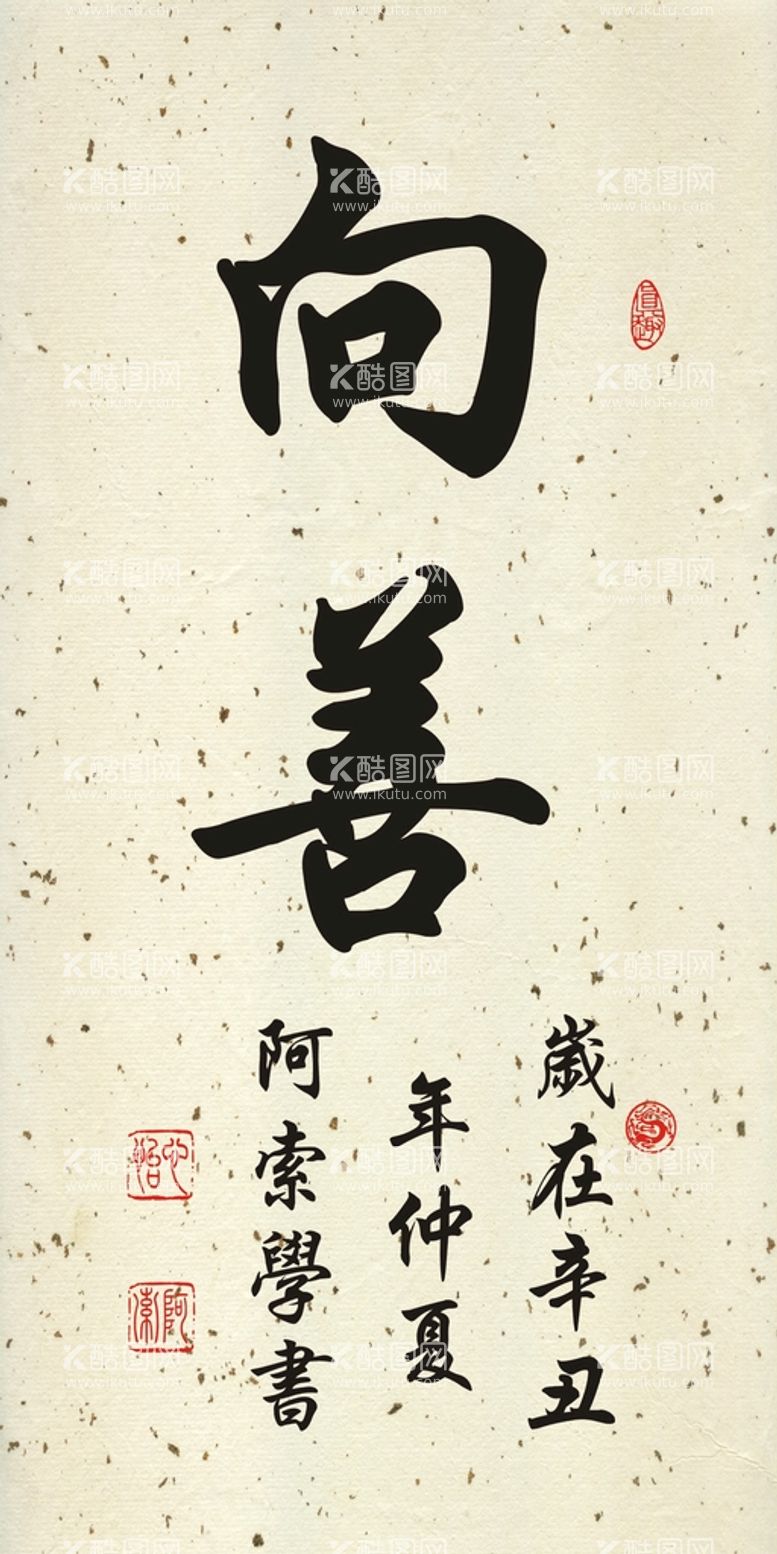 向善
歲在辛丑
年仲夏
阿索學書
酷图网
www.ikutu.com